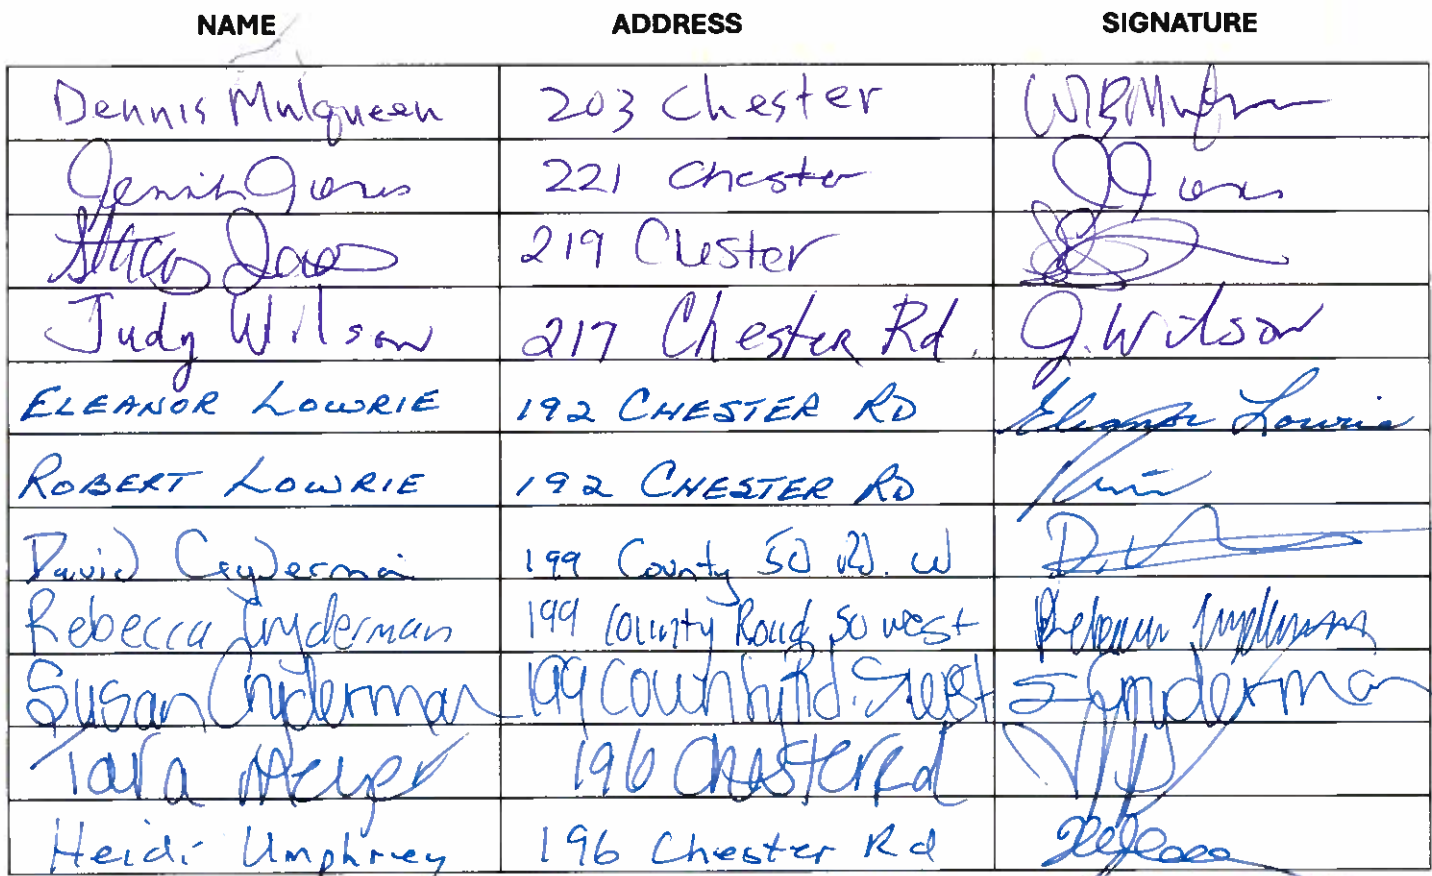 NAME ADDRESS SIGNATURE
Dennis Mulqueen 203 Chester
Jones 221 Chester JJones
Stacy Jones 219 Chester
Judy Wilson 217 Chester Rd. J. Wilson
ELEANOR LOWRIE 192 CHESTER RD Eleanor Lowrie
ROBERT LOWRIE 192 CHESTER RD
David Cryderman 199 County 50 Rd. W
Rebecca Cryderman 199 County Road 50 west Rebecca Cryderman
Susan Cryderman 199 County Rd. S Cryderman
Tara Meyer 196 Chester Rd
Heidi Umphrey 196 Chester Rd